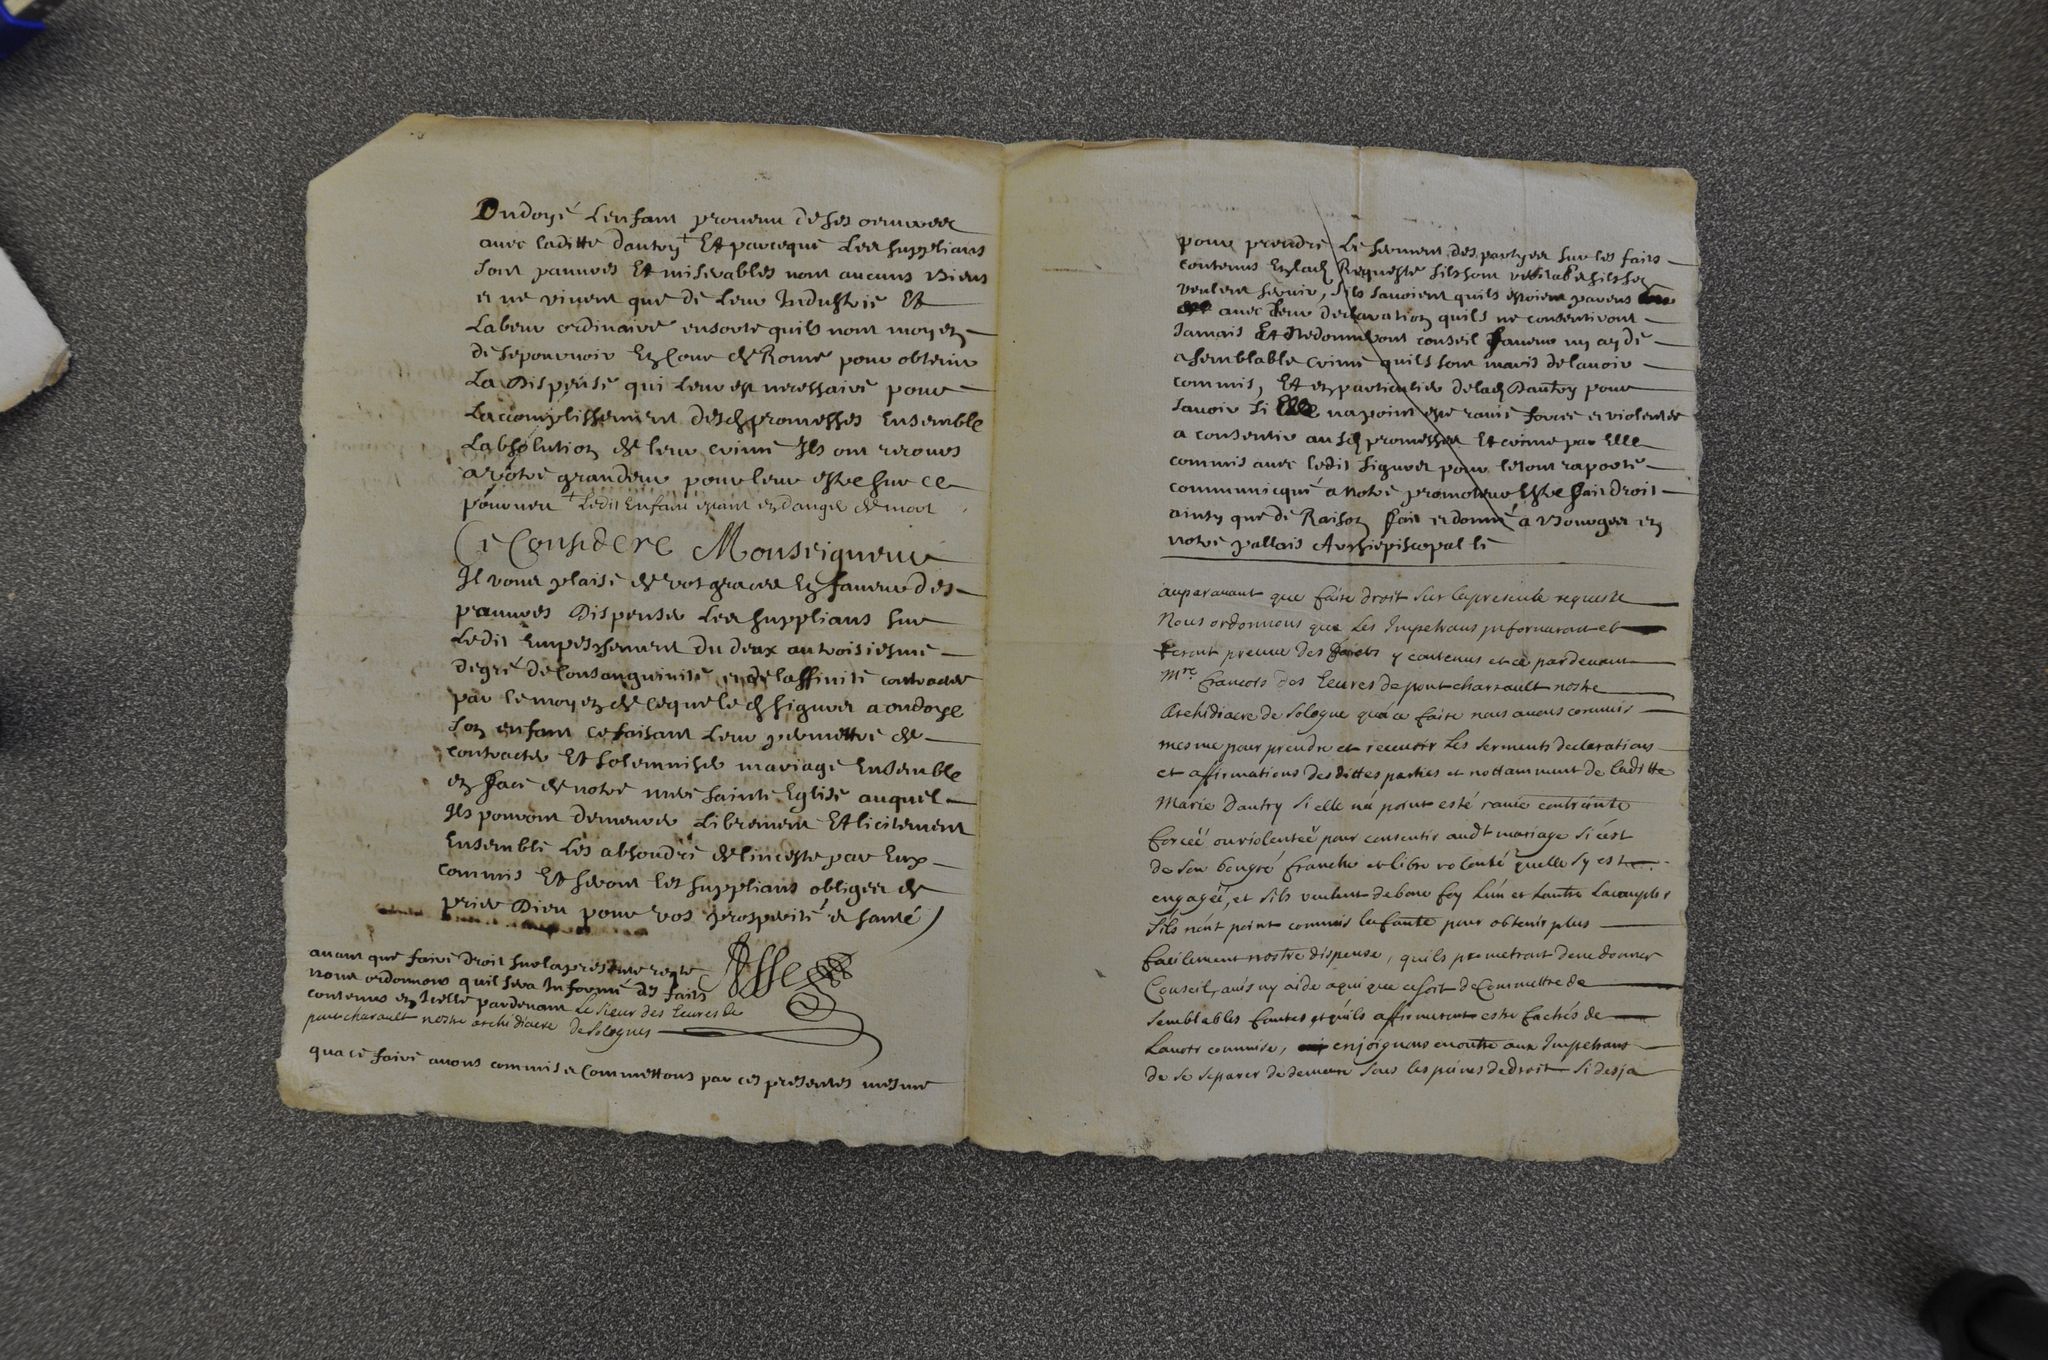 Ondoyé Lenfant provenu de ses oeuvres
avec laditte dautry + Et parceque Les suppliants
sont pauvres Et miserables nont aucuns Biens
et ne vivent que de leur Industrie Et
Labeur ordinaire ensorte quils nont moyen
de se pourvoir En Cour de Rome pour obtenir
La Dispense qui leur est necessaire pour
Laccomplissement desd promesses Ensemble
Labsolution de leur crime Ils ont recours
a votre grandeur pour leur estre sur ce
pourveu + Ledit Enfant estant en danger de mort
Ce Consideré Monseigneur
Il vous plaise de vos graces En faveur des
pauvres Dispenser Les suppliants sur
Ledit Empeschement du deux au troisiesme
degré de Consanguinité et de laffinité contractée
par le moyen de ce que led signoret a ondoyé
son enfant ce faisant leur permettre de
contracter Et solemniser mariage Ensemble
en face de notre mere sainte Eglise auquel
Ils pouront demeurer Librement Et licitement
Ensemble Les absoudre de linceste par Eux
commis Et seront les suppliants obligez de
prier Dieu pour vos prosperité et santé
avant que faire droit sur la presente reqte
nous ordonnons quil sera Informé des faits
contenus en Icelle pardevant Le sieur des Eeures de
pontcharault nostre archidiacre de Sologne
qua ce faire avons commis et Commettons par ces presentes mesme
pour prendre Le serment des partyes sur les faits
contenus En lad Requeste sils sont veritables sils sen
veulent servir, sils savoient quils estoient parens
avec leur declaration quils ne consentiront
Jamais Et ne donneront conseil faveur ny ayde
a semblable crime quils sont maris de lavoir
commis, Et en particulier de lad Dautry pour
savoir si Elle na point esté ravie forcée et violentée
a consentir ausd promesses Et crime par Elle
commis avec ledit signoret pour le tout raporté
communicqué a notre promoteur Estre fait droit
ainsy que de Raison fait et donné a Bourges en
notre pallais Archiepiscopal le
auparavant que faire droit sur la presente requeste
Nous ordonnons que Les Impetrans informeront et
feront preuve des faicts y contenus et ce pardevant
Mre francois des Eeures de pontcharrault nostre
Archidiacre de Sologne qu'a ce faire nous avons commis
mesme pour prendre et recevoir Les serments declarations
et affirmations desdittes parties et nottamment de laditte
Marie Dautry si elle n'a point esté ravie contrainte
forcéé ou violenteé pour consentir audt mariage si c'est
de son bongré franche et libre volonté quelle s'y est
engagéé, et sils veulent de bone foy Lun et Lautre Laccomplir
sils n'ont point commis la faute pour obtenir plus
facilement nostre dispense, quils prometront de ne donner
Conseil, avis ny aide a qui que ce soit de Commettre de
semblables fautes et quils affirmeront estre fachés de
Lavoir commise, enjoignons en outre aux Impetrans
de se separer de demeure sous les peines de droit si desja